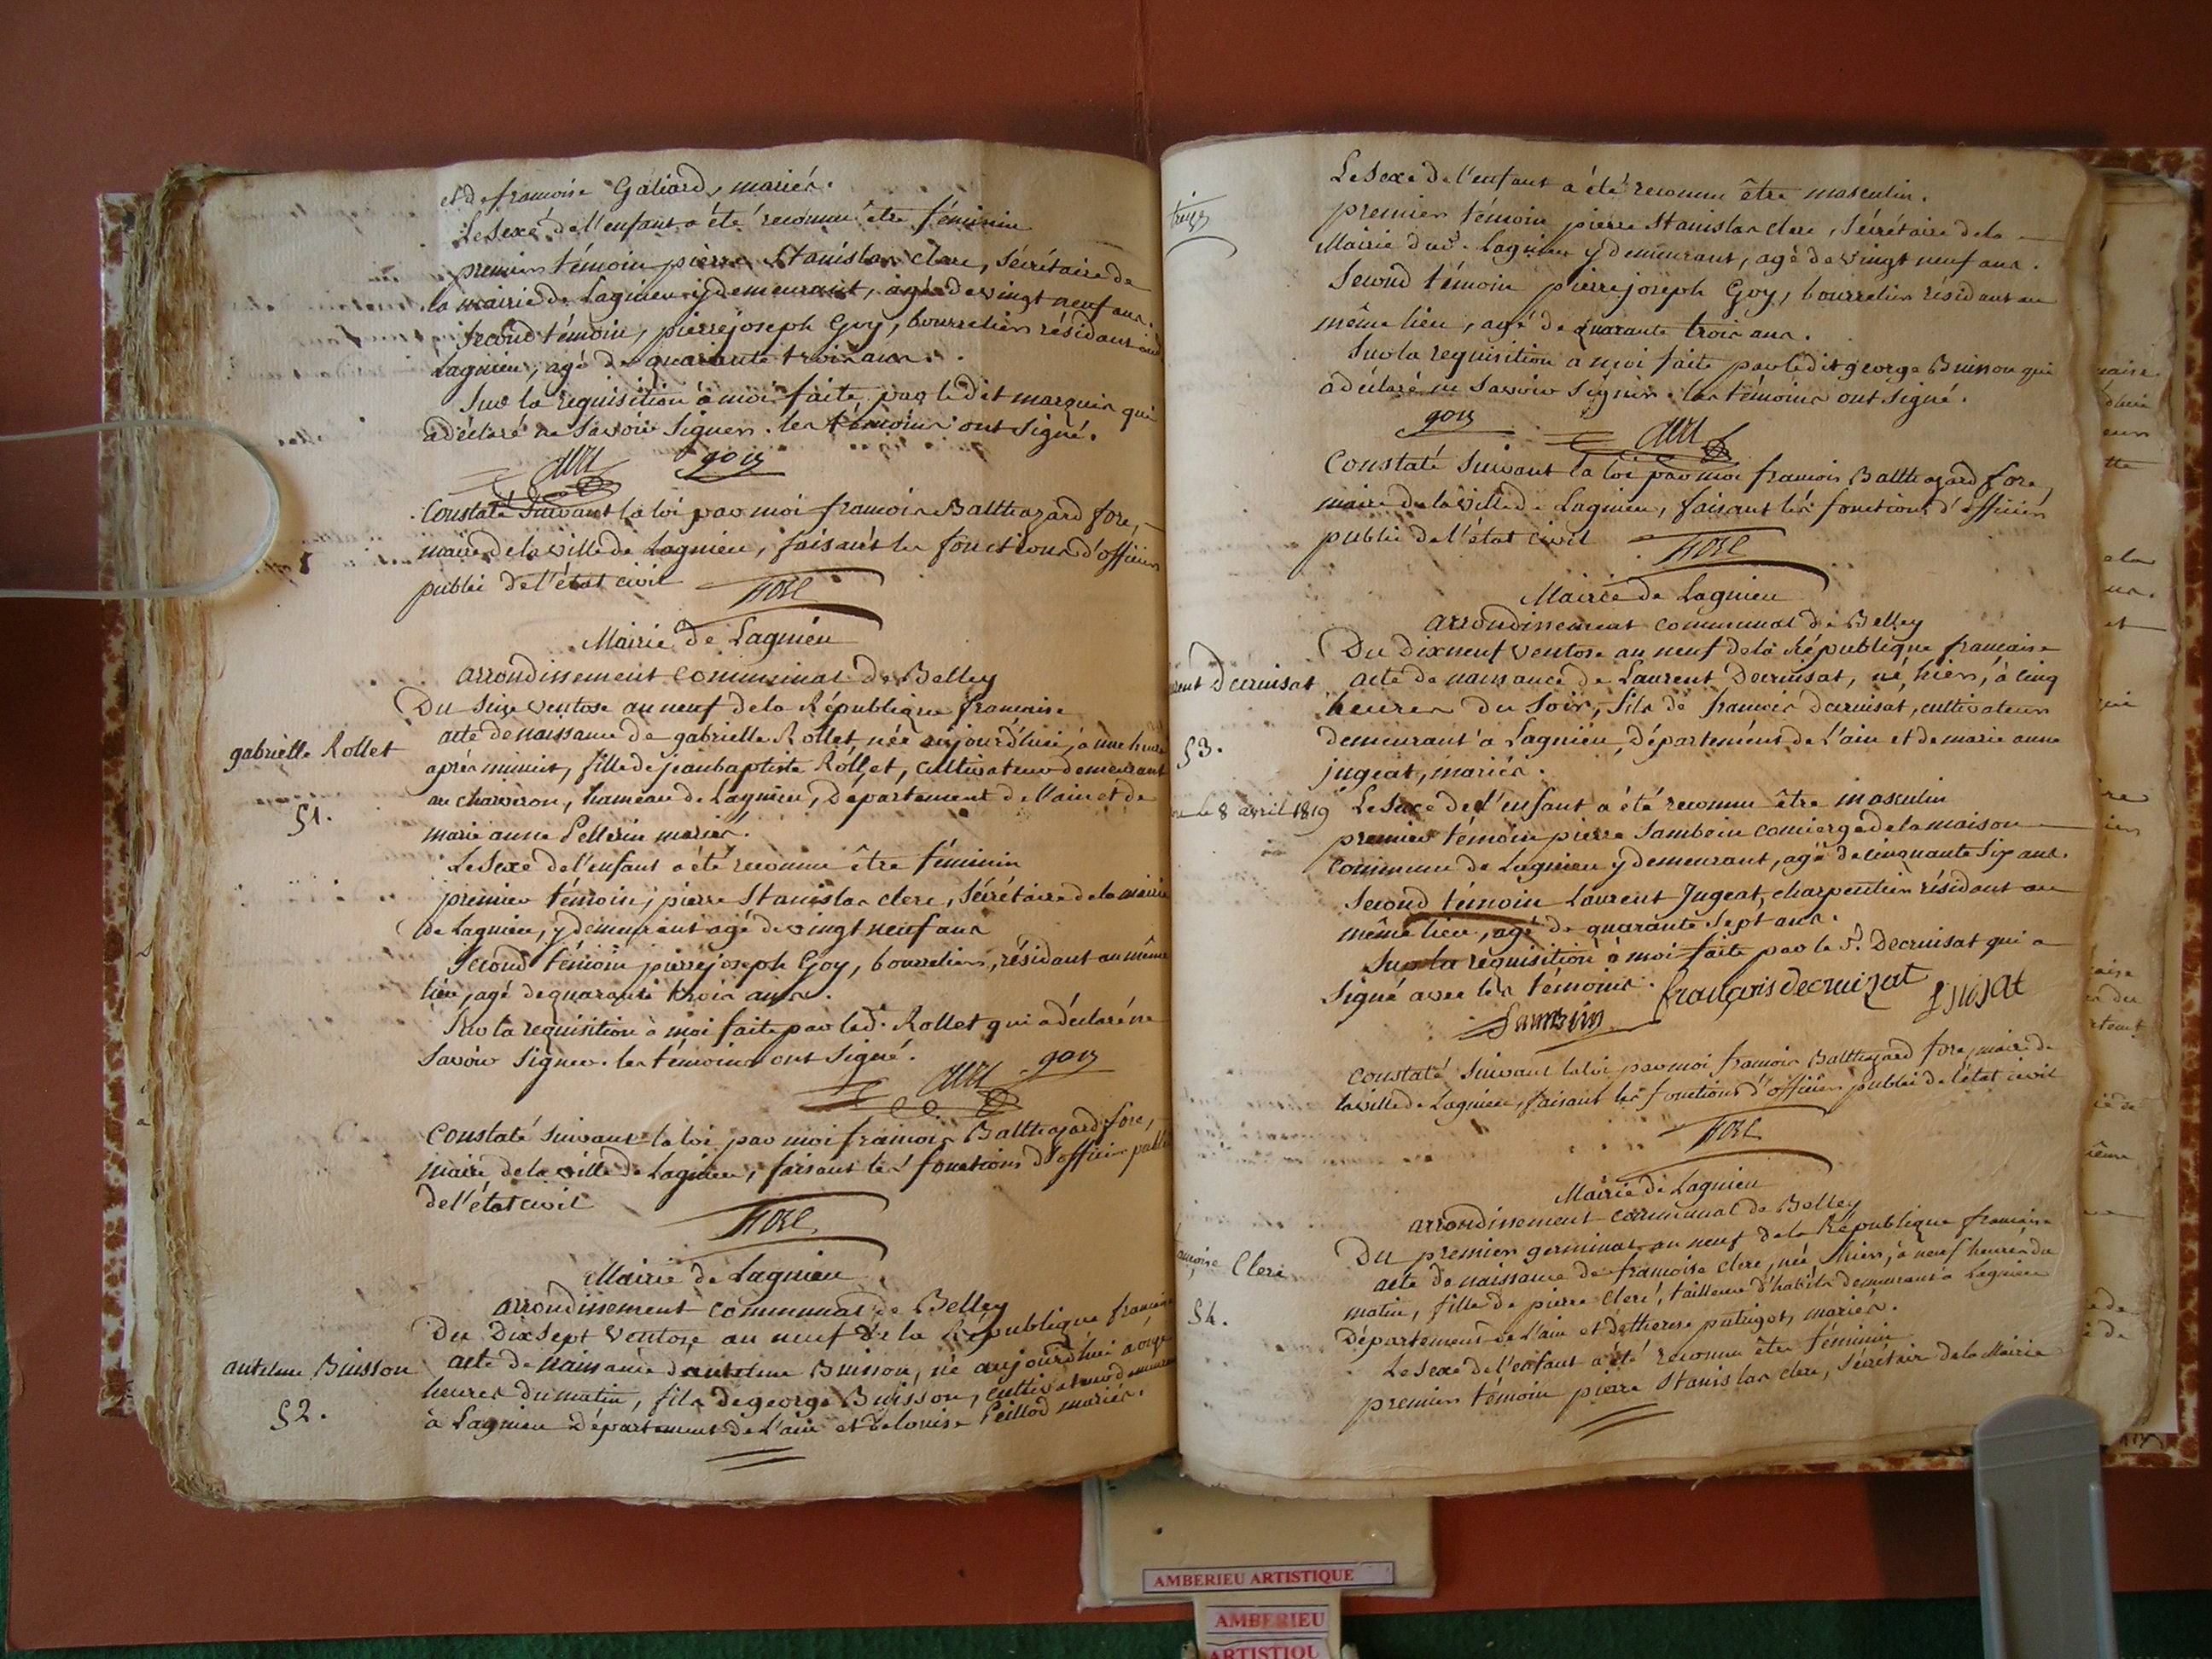 et de francoise Galiard, mariés.
Le Sexe de l'enfant a été reconnu être féminin
premier témoin pierre Stanislas clerc, Sécrétaire de
la mairie de Lagnieu y demeurant, agé de vingt neuf ans.
Second témoin, pierre joseph Goy, bourrelier résidant aud.
Lagnieu, agé de quarante trois ans.
Sur la requisition à moi faite par le dit marquis qui
a déclaré ne Savoir Signer. les témoins ont Signé.
goy
Constaté Suivant la loi par moi francois Balthazard fore,
maire de la ville de Lagnieu, faisant les fonctions d'officier
public de l'état civil
fore
Mairie de Lagnieu
arrondissement communal de Belley
Du Seize ventose an neuf de la République francaise
gabrielle Rollet
51.
acte de naissance de gabrielle Rollet, née aujourd'hui, à une heure
après minuit, fille de jean baptiste Rollet, cultivateur demeurant
au charveron, hameau de Lagnieu, Département de l'ain et de
marie anne Pellerin mariés.
Le Sexe de l'enfant a été reconnu être féminin
premier témoin, pierre Stanislas clerc, Sécrétaire de la mairie
de Lagnieu, y demeurant agé de vingt neuf ans
Second témoin pierre joseph Goy, bourrelier, résidant au même
lieu, agé de quarante trois ans.
Sur la requisition à moi faite par led. Rollet qui a déclaré ne
Savoir Signer. les témoins ont Signé.
goy
Constaté Suivant la loi par moi francois Balthazard fore,
maire de la ville de Lagnieu, faisant les fonctions d'officier public
de l'état civil
fore
Mairie de Lagnieu
arrondissement communal de Belley
Du Dix Sept Ventose an neuf de la République francaise
antelme Buisson
52.
acte de naissance d'antelme Buisson, né aujourd'hui a onze
heures du matin, fils de george Buisson, cultivateur demeurant
à Lagnieu Département de L'ain et de louise Peillod mariés.
Le Sexe de l'enfant a été reconnu être masculin.
premier témoin pierre Stanislas clerc, Sécrétaire de la
Mairie dud. Lagnieu y demeurant, agé de vingt neuf ans.
Second témoin pierre joseph Goy, bourrelier résidant au
même lieu, agé de quarante trois ans.
Sur la requisition a moi faite par le dit george Buisson qui
a déclaré ne Savoir Signer. les témoins ont Signé.
goy
Constaté Suivant la loi par moi francois Balthazard fore,
maire de la ville de Lagnieu, faisant les fonctions d'officier
public de l'état civil
fore
Mairie de Lagnieu
arrondissement communal de Belley
Du Dix neuf ventose an neuf de la République francaise
Decruisat
53.
acte de naissance de Laurent Decruisat, né, hier, à cinq
heures du Soir, fils de francois decruisat, cultivateur
demeurant à Lagnieu, Département de L'ain et de marie anne
jugeat, mariés.
le 8 avril 1819
Le Sexe de l'enfant a été reconnu être masculin
premier témoin pierre Sambein concierge de la maison
commune de Lagnieu y demeurant, agé de cinquante Six ans.
Second témoin Laurent Jugeat, charpentier résidant au
même lieu, agé de quarante Sept ans.
Sur la requisition à moi faite par le S.r Decruisat qui a
Signé avec les témoins.
françois decruizat
Constaté Suivant la loi par moi francois Balthazard fore, maire de
la ville de Lagnieu, faisant les fonctions d'officier public de l'état civil
fore
Mairie de Lagnieu
arrondissement communal de Belley
Du premier germinal an neuf de la République francaise
Clerc
54.
acte de naissance de francoise clerc, née, hier, à neuf heures du
matin, fille de pierre clerc, tailleur d'habits demeurant à Lagnieu
Département de L'ain et de therese putigot, mariés.
Le Sexe de l'enfant a été reconnu être féminin
premier témoin pierre Stanislas clerc, Sécrétaire de la Mairie
AMBERIEU ARTISTIQUE
AMBERIEU